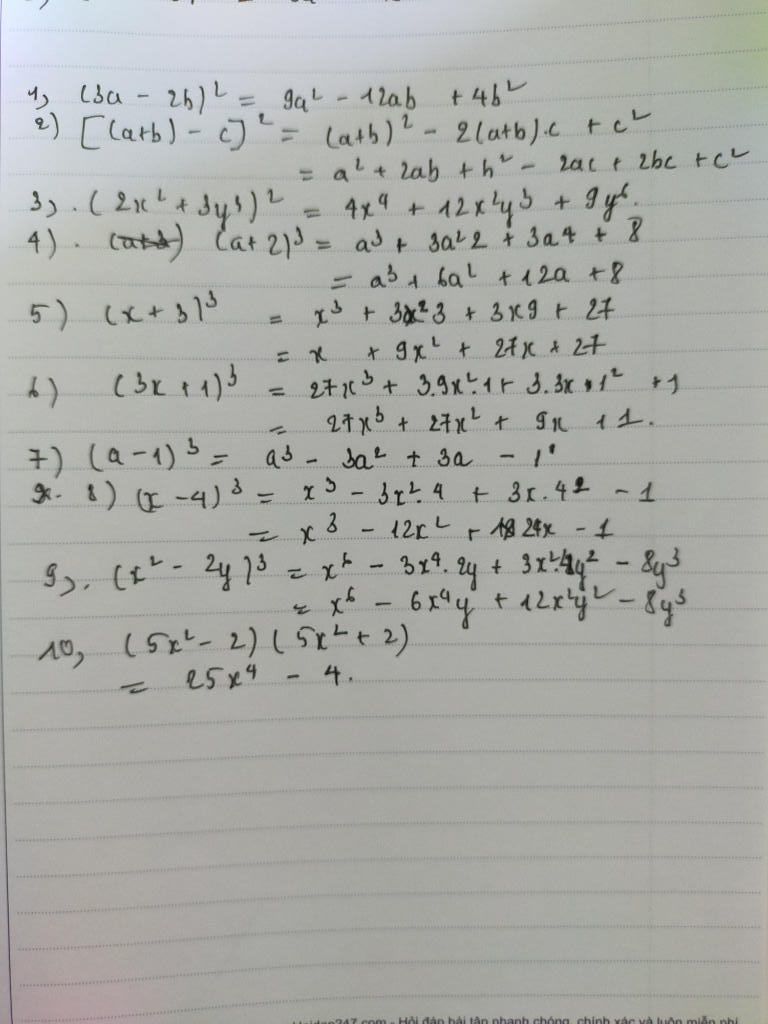 1, (3a - 2b)² = 9a² - 12ab + 4b²
2) [(a+b) - c]² = (a+b)² - 2(a+b).c + c²
= a² + 2ab + b² - 2ac + 2bc + c²
3), . (2x² + 3y³)² = 4x⁴ + 12x²y³ + 9y⁶.
4) . (a+3) (a+2)³ = a³ + 3a²2 + 3a4 + 8
= a³ + 6a² + 12a + 8
5) (x+3)³ = x³ + 3x²3 + 3x9 + 27
= x + 9x² + 27x + 27
6) (3x+1)³ = 27x³ + 3.9x².1 + 3.3x.1² + 1
= 27x³ + 27x² + 9x + 1.
7) (a-1)³ = a³ - 3a² + 3a - 1
8) (x-4)³ = x³ - 3x².4 + 3x.4² - 1
= x³ - 12x² + 24x - 1
9), . (x² - 2y)³ = x⁶ - 3x⁴.2y + 3x².4y² - 8y³
= x⁶ - 6x⁴y + 12x²y² - 8y³
10, (5x² - 2)(5x² + 2)
= 25x⁴ - 4.
Hoidap247.com - Hỏi đáp bài tập nhanh chóng, chính xác và luôn miễn phí